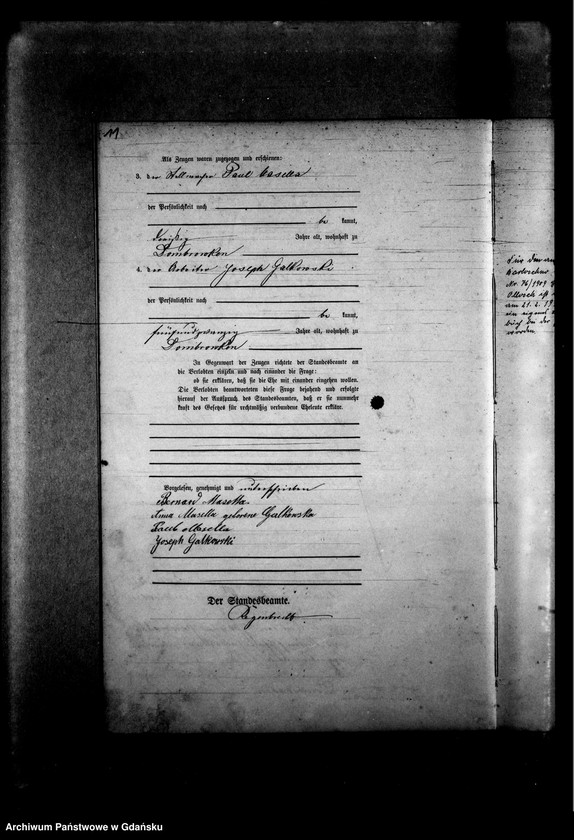 11
Als Zeugen waren zugezogen und erschienen:
3. der Stellmacher Paul Masella
der Persönlichkeit nach
be kannt,
dreißig Jahre alt, wohnhaft zu
Dombrowken
4. der Arbeiter Joseph Galkowski
der Persönlichkeit nach
be kannt,
fünfundzwanzig Jahre alt, wohnhaft zu
Dombrowken
In Gegenwart der Zeugen richtete der Standesbeamte an
die Verlobten einzeln und nach einander die Frage:
ob sie erklären, daß sie die Ehe mit einander eingehen wollen.
Die Verlobten beantworteten diese Frage bejahend und erfolgte
hierauf der Ausspruch des Standesbeamten, daß er sie nunmehr
kraft des Gesetzes für rechtmäßig verbundene Eheleute erkläre.
Vorgelesen, genehmigt und unterschrieben
Bernard Masella
Anna Masella geborene Galkowska
Paul Masella
Joseph Galkowski
Der Standesbeamte.
Regenbrecht
Nr. 76/1909
am 21. 2. 19
ein eigenes
buch in der
worden
Archiwum Państwowe w Gdańsku